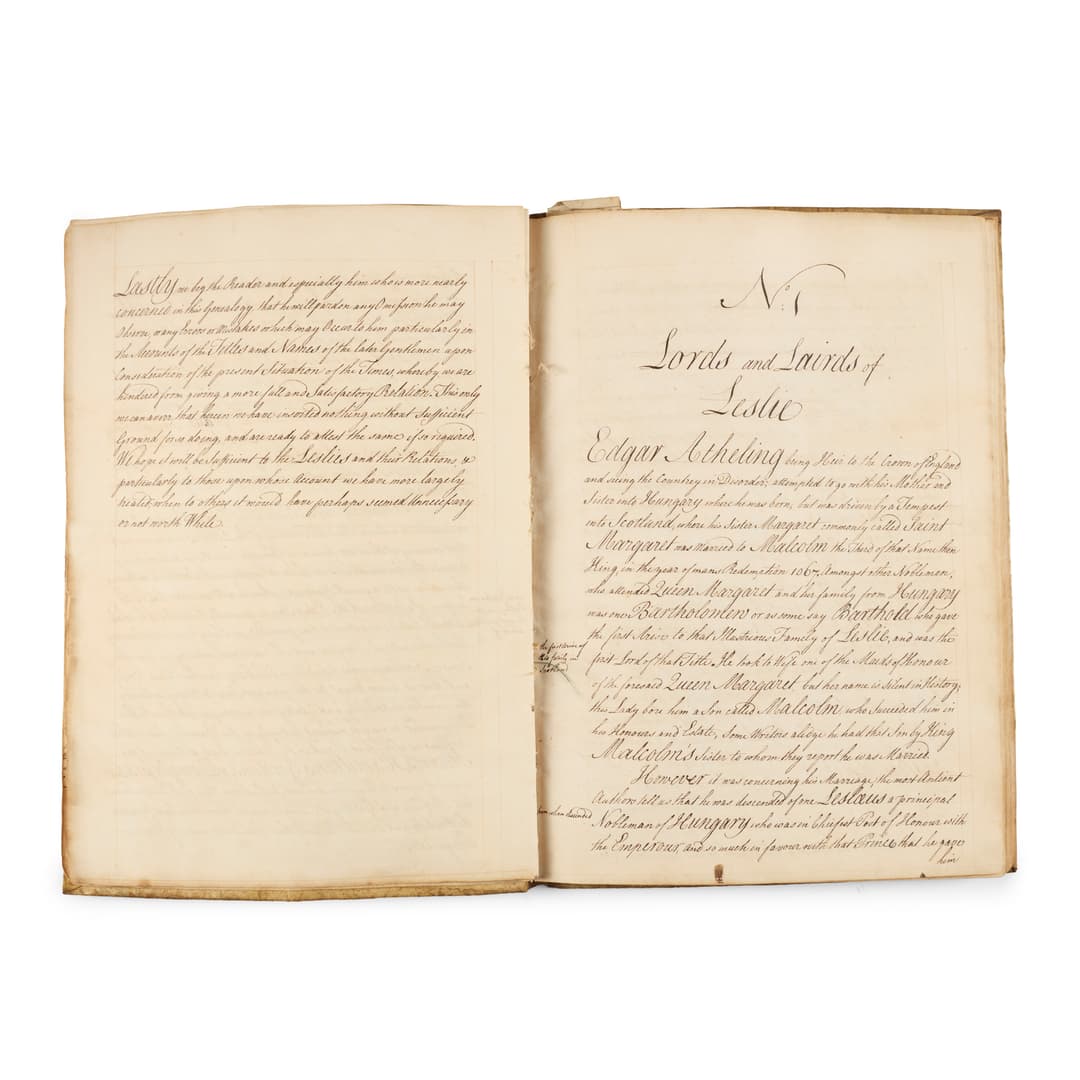 Lastly we beg the Reader and especially him who is more nearly
concerned in this Genealogy, that he will pardon any Omission he may
Observe, or any Errors or Mistakes which may Occur to him particularly in
the Accounts of the Titles and Names of the later Gentlemen upon
Consideration of the present Situation of the Times, whereby we are
hindered from giving a more full and Satisfactory Relation. This only
we can averr that herein we have inserted nothing without Sufficient
Ground for so doing, and are ready to attest the same if so required.
We hope it will be Sufficient to the Leslies and their Relations, &
particularly to those upon whose Account we have more largely
treated, when to others it would have perhaps seemed Unnecessary
or not worth While.
No. 1
Lords and Lairds of
Leslie
Edgar Atheling being Heir to the Crown of England
and seeing the Countrey in Disorder, attempted to go with his Mother and
Sister into Hungary where he was born, but was driven by a Tempest
into Scotland, where his Sister Margaret commonly called Saint
Margaret was Married to Malcolm the Third of that Name then
King, in the year of mans Redemption 1067. Amongst other Noblemen,
who attended Queen Margaret and her family from Hungary
was one Bartholomew or as some say Barthold who gave
the first Arise to that Illustrious Family of Leslie, and was the
first Lord of that Title. He took to Wife one of the Maids of Honour
of the foresaid Queen Margaret, but her name is Silent in History;
this Lady bore him a Son called Malcolm, who Succeeded him in
his Honours and Estate, Some Writers alledge he had that Son by King
Malcolm's Sister to whom they report he was Married.
However it was concerning his Marriage, the most Antient
Authors tell us that he was descended of one Leslæus a principal
Nobleman of Hungary who was in Chiefest Post of Honour with
the Emperour, and so much in favour with that Prince that he gave
him
this family in
Scotland
whom descended